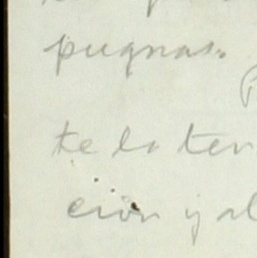 pugnas.
te lo ten
ción y al